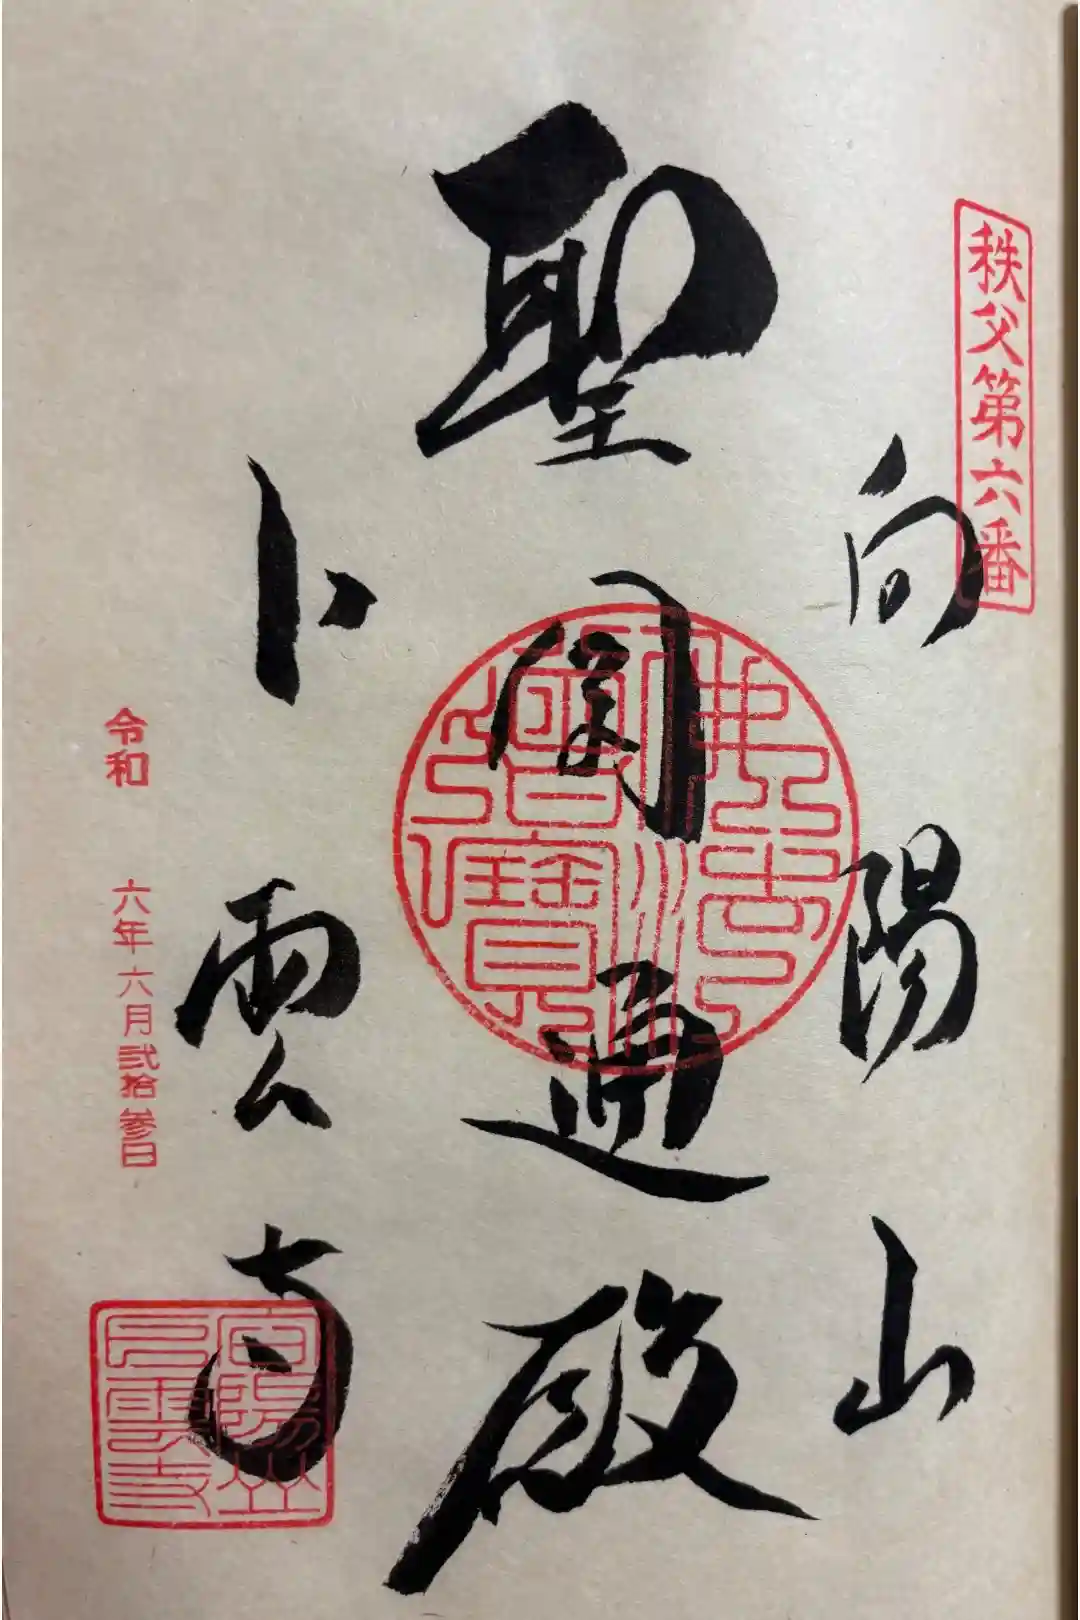 秩父第六番
向陽山
聖閣通殿
佛法僧寶
卜雲寺
令和 六年六月弐拾参日
向陽山卜雲寺